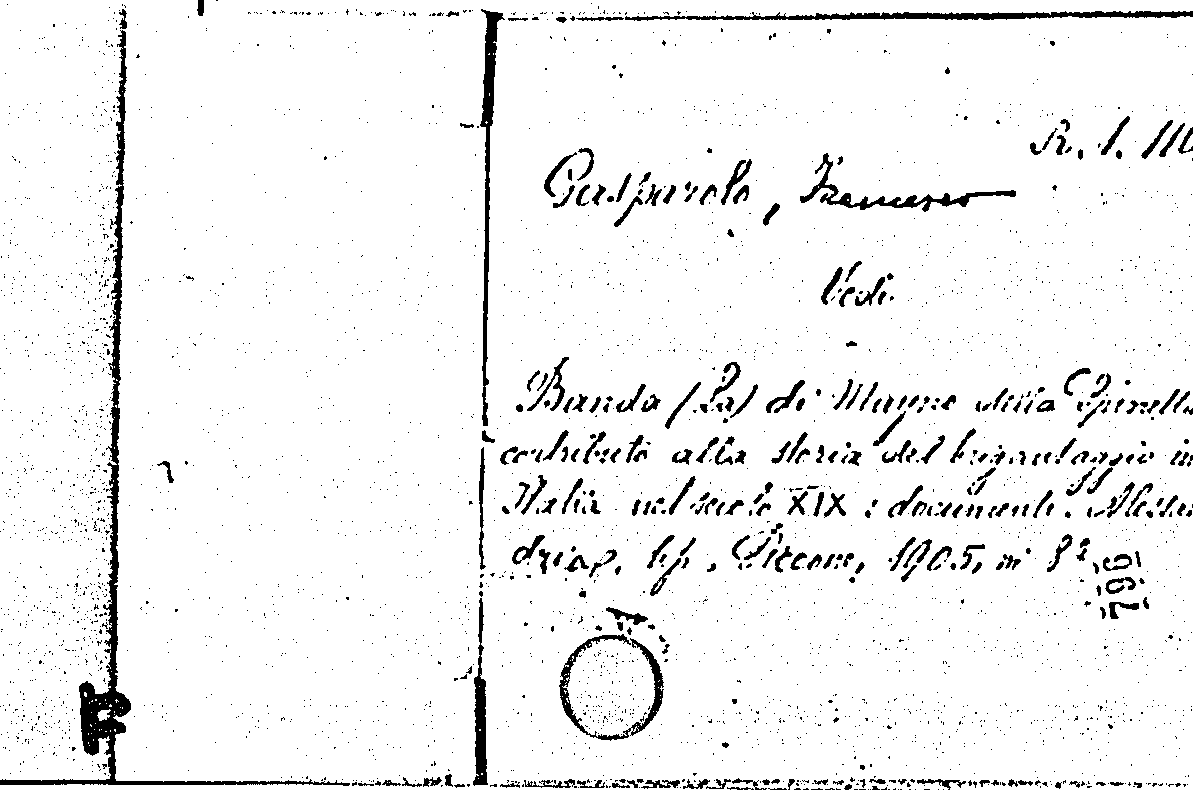 R. 1. 110
Gasparolo, Francesco
Vedi
Banda (La) di Mayno della Spinetta
contributo alla storia del brigantaggio in
Italia nel secolo XIX : documenti. Alessan
dria, tip. Piccone, 1905, in 8º
796